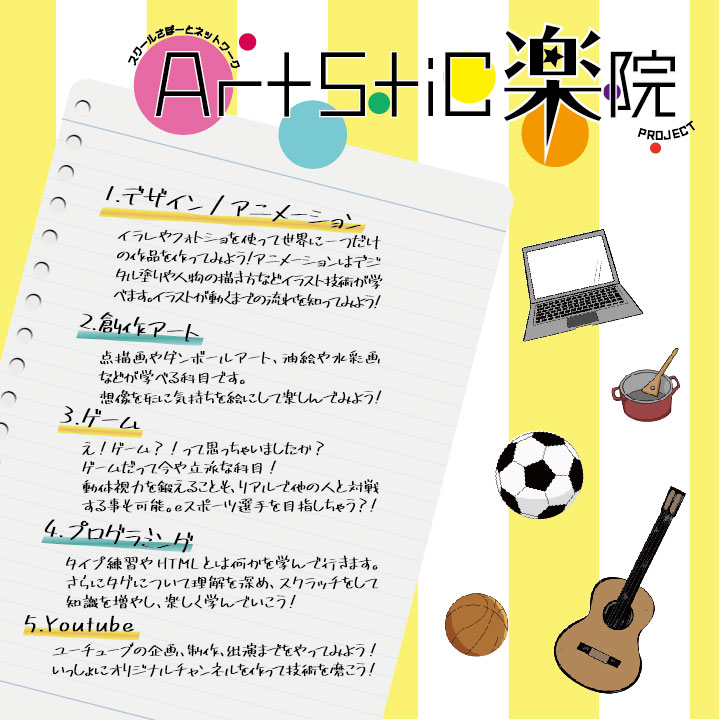 スクールさぽーとネットワーク
ArtStic楽院
PROJECT
1.デザイン/アニメーション
イラレやフォトショを使って世界に一つだけ
の作品を作ってみよう!アニメーションはデジ
タル塗りや人物の描き方などイラスト技術が学
べます。イラストが動くまでの流れを知ってみよう!
2.創作アート
点描画やダンボールアート、油絵や水彩画
などが学べる科目です。
想像を形に気持ちを絵にして楽しんでみよう!
3.ゲーム
え!ゲーム?!って思っちゃいましたか?
ゲームだって今や立派な科目!
動体視力を鍛えることも、リアルで他の人と対戦
する事も可能。eスポーツ選手を目指しちゃう?!
4.プログラミング
タイプ練習やHTMLとは何かを学んで行きます。
さらにタグについて理解を深め、スクラッチをして
知識を増やし、楽しく学んでいこう!
5.Youtube
ユーチューブの企画、制作、出演までをやってみよう!
いっしょにオリジナルチャンネルを作って技術を磨こう!